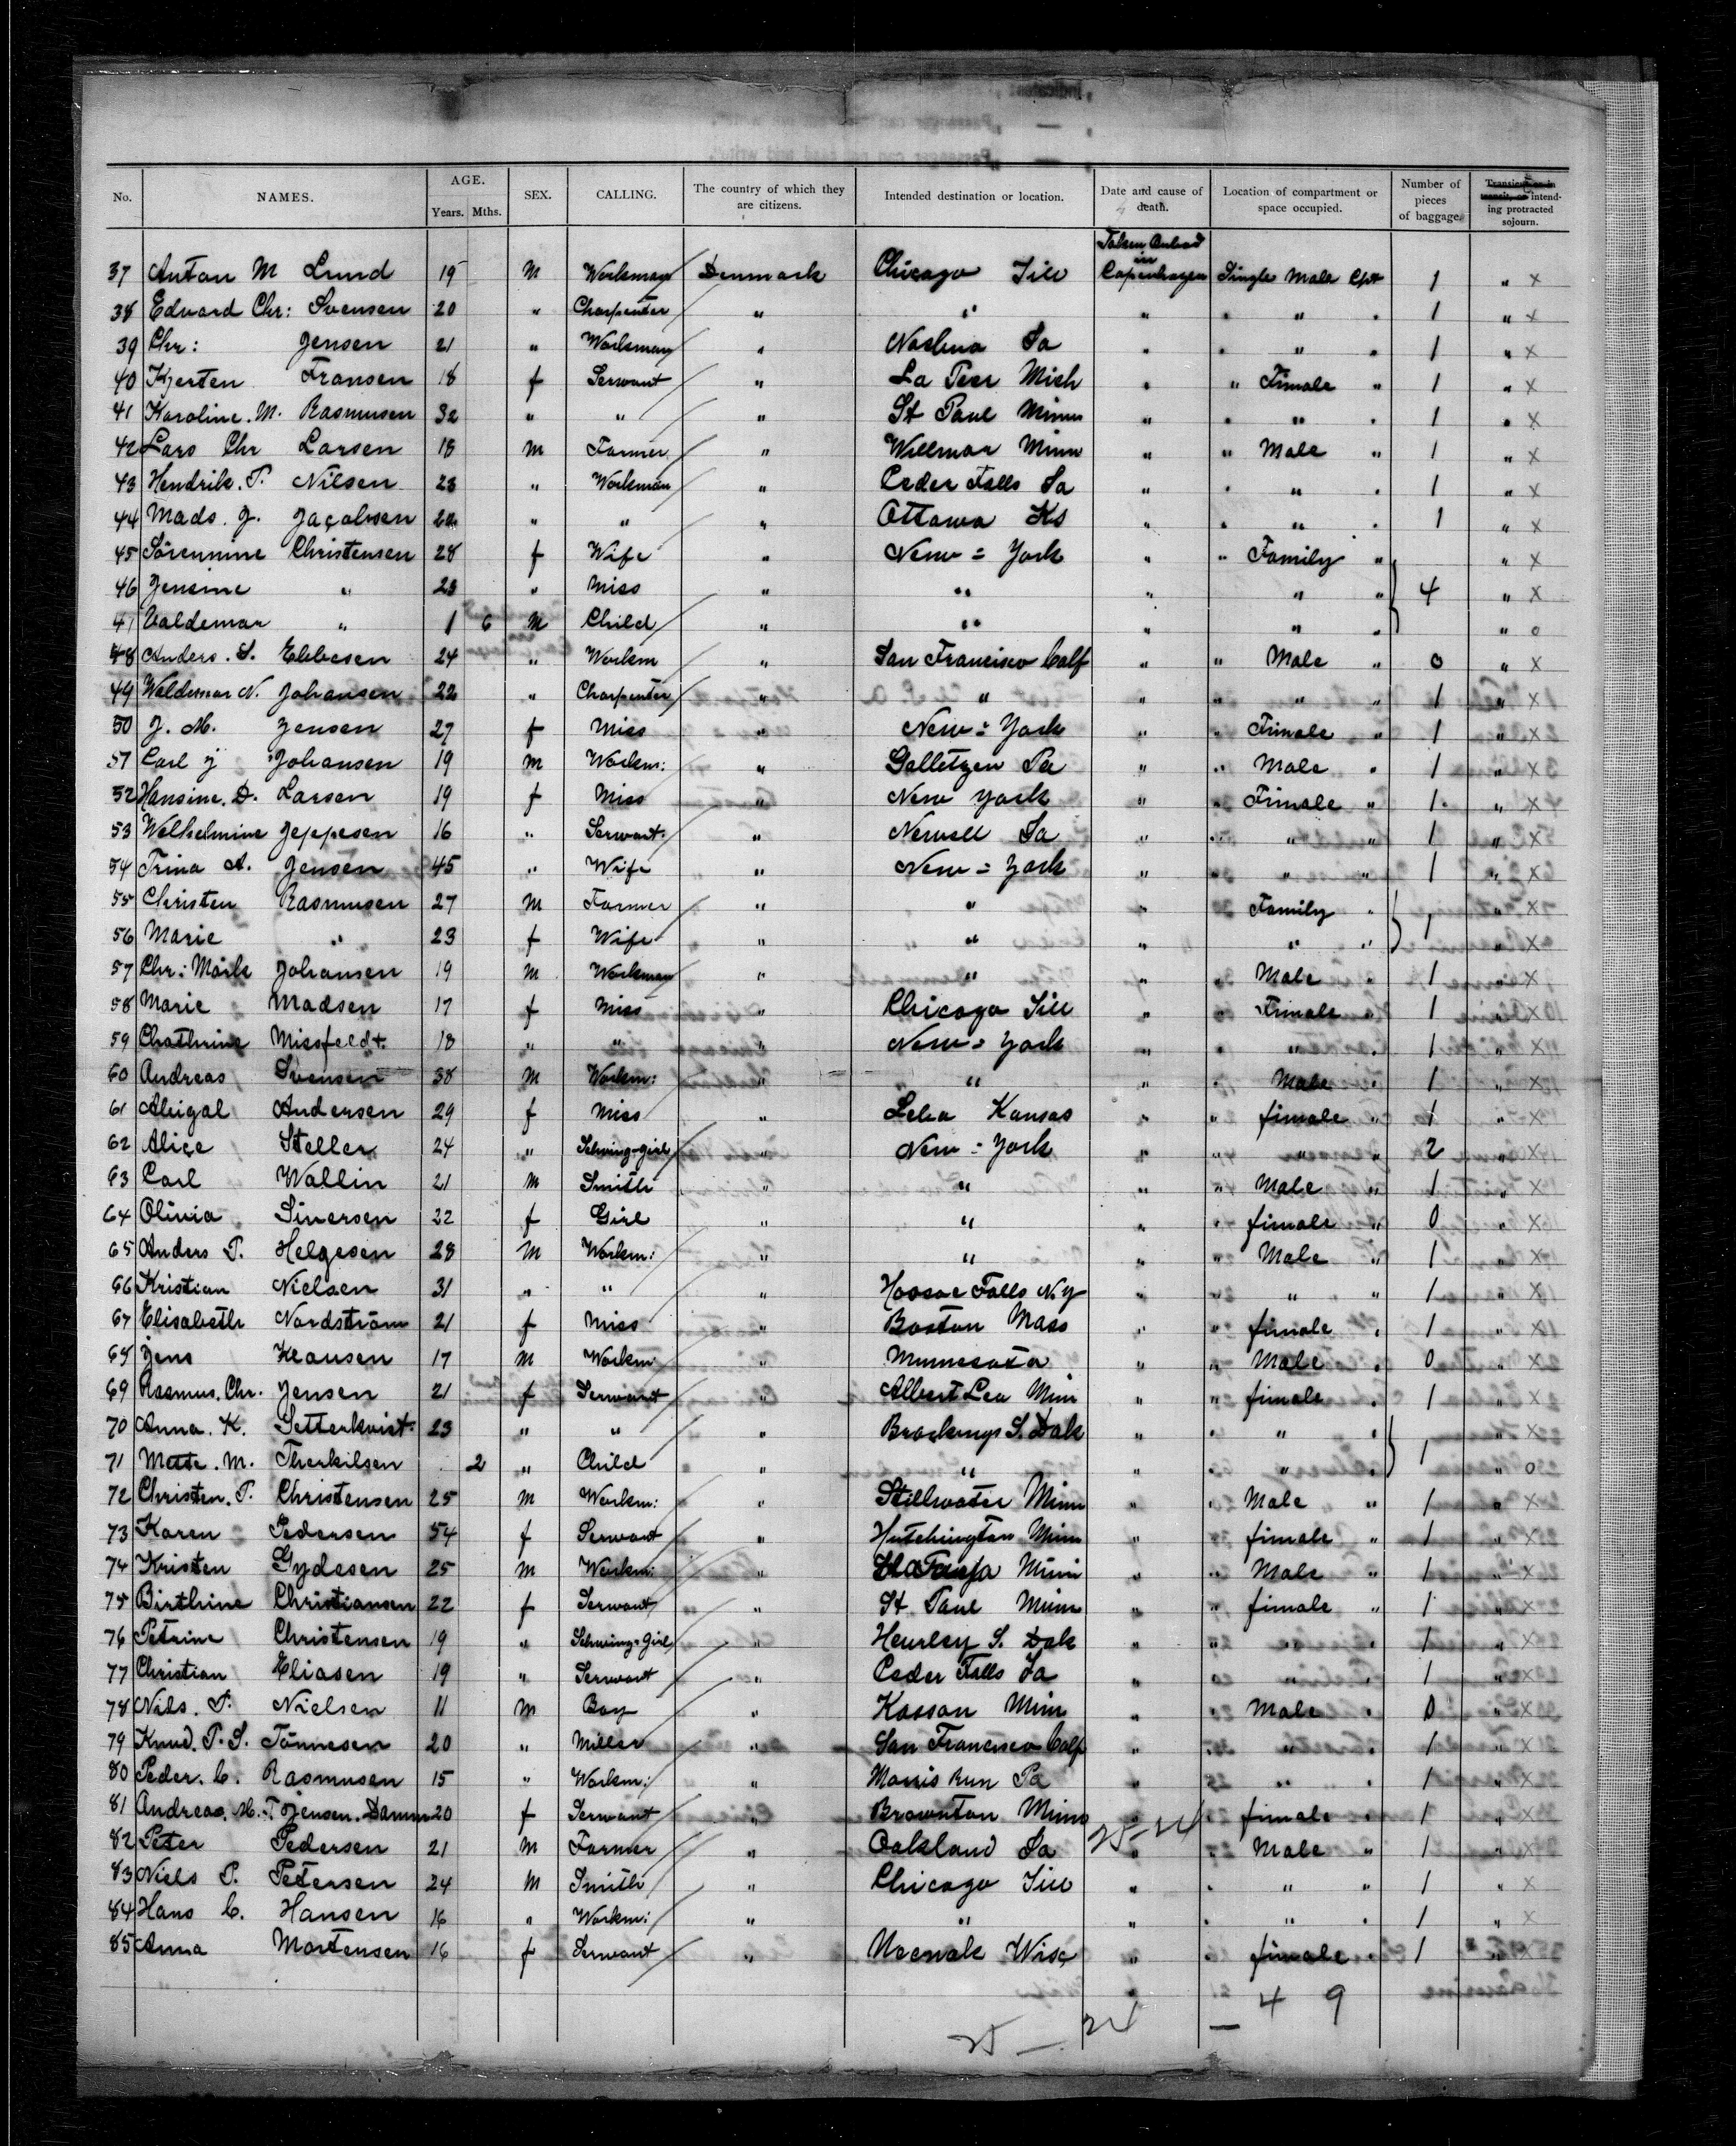 No. NAMES. AGE. Years. Mths. SEX. CALLING. The country of which they are citizens. Intended destination or location. Date and cause of death. Location of compartment or space occupied. Number of pieces of baggage. Transient or in transit, or intending protracted sojourn.
37 Anton M Lund 19 M Workman Denmark Chicago Ill Taken Onbord in Copenhagen Single Male Cpt 1 " X
38 Edvard Chr: Svensen 20 " Charpenter " " " " " " 1 " X
39 Chr: Jensen 21 " Workman " Nashua Ia " " " " 1 " X
40 Kjersten Fransen 18 f Servant " La Peer Mich " " Fimale " 1 " X
41 Karoline. M. Rasmusen 32 " " " St Paul Minn " " " " 1 " X
42 Lars Chr Larsen 18 M Farmer " Willmar Minn " " Male " 1 " X
43 Hendrik. P. Nilsen 23 " Workman " Ceder Falls Ia " " " " 1 " X
44 Mads. J. Jacobsen 20 " " " Ottawa Ks " " " " 1 " X
45 Sörennine Christensen 28 f Wife " New = York " " Family " " X
46 Jensine " 23 " Miss " " " " " 4 " X
47 Valdemar " 1 6 M Child " " " " " " o
48 Anders. S. Ebbesen 24 " Workm " San Francisco Calf " " Male " 0 " X
49 Waldemar N. Johansen 22 " Charpenter " " " " " " 1 " X
50 J. M. Jensen 27 f Miss " New = York " " Fimale " 1 " X
51 Carl J Johansen 19 M Workm: " Gallitzen Pa " " Male " 1 " X
52 Hansine. D. Larsen 19 f Miss " New York " " Fimale " 1 " X
53 Welhelmine Jeppesen 16 " Servant " Newell Ia " " " " 1 " X
54 Trina A. Jensen 45 " Wife " New = York " " " " 1 " X
55 Christen Rasmusen 27 M Farmer " " " Family " 1 " X
56 Marie " 23 f Wife " " " " " " X
57 Chr: Mark Johansen 19 M Workman " " " Male " 1 " X
58 Marie Madsen 17 f Miss " Chicago Ill " " Fimale " 1 " X
59 Chathrine Missfeldt. 18 " " " New = York " " " " 1 " X
60 Andreas Svensen 38 M Workm: " " " " Male " 1 " X
61 Abigal Andersen 29 f Miss " Kansas " " fimale " 1 " X
62 Alice Steller 24 " Schwing-girl " New = York " " " " 2 " X
63 Carl Wallin 21 M Smith " " " " Male " 1 " X
64 Olivia Sinersen 22 f Girl " " " " fimale " 0 " X
65 Anders P. Helgesen 28 M Workm: " " " " Male " 1 " X
66 Kristian Nielsen 31 " " " Hoosac Falls N.Y " " " " 1 " X
67 Elisabeth Nordström 21 f Miss " Boston Mass " " fimale " 1 " X
68 Jens Klausen 17 M Workm " Minnesota " " Male " 0 " X
69 Rasmus. Chr. Jensen 21 f Servant " Albert Lea Min " " fimale " 1 " X
70 Anna. K. Setterkvist 23 " " " Brockings S. Dak " " " " 1 " X
71 Mette. M. Therkilsen 2 " Child " " " " " " " o
72 Christen. P. Christensen 25 M Workm: " Stillwater Minn " " Male " 1 " X
73 Karen Pedersen 54 f Servant " Hutchington Minn " " fimale " 1 " X
74 Kristen Gydesen 25 M Workm: " Minn " " Male " 1 " X
75 Birthine Christiansen 22 f Servant " St Paul Minn " " fimale " 1 " X
76 Petrine Christensen 19 " Schwing-Girl " Heurley S. Dak " " " " 1 " X
77 Christian Eliasen 19 " Servant " Ceder Falls Ia " " " " 1 " X
78 Nils. P. Nielsen 11 M Boy " Kasson Minn " " Male " 0 " X
79 Knud. P. S. Tönnesen 20 " Miller " San Francisco Calf " " " " 1 " X
80 Peder. C. Rasmusen 15 " Workm: " Morris Run Pa " " " " 1 " X
81 Andreas. M. T Jensen. Damm 20 f Servant " Brownton Minn " fimale " 1 " X
82 Peter Pedersen 21 M Farmer " Oakland Ia " " Male " 1 " X
83 Niels P. Petersen 24 M Smith " Chicago Ill " " " " 1 " X
84 Hans C. Hansen 16 " Workm: " " " " " " 1 " X
85 Anna Mortensen 16 f Servant " Neenah Wisc " " fimale " 1 " X
4 9
25 — 24